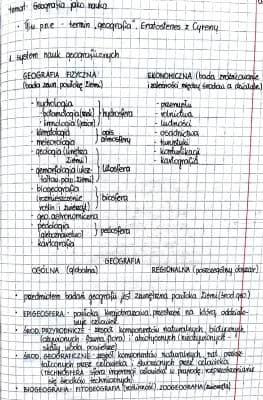 temat: Geografia jako nauka
· IIIw. p.n.e - termin „geografia", Eratostenes z Cyreny
1. system nauk geograficznych
GEOGRAFIA FIZYCZNA
(bada zewn. powłokę Ziemi)
EKONOMICZNA (bada zróżnicowanie
i zależności między środow. a działaln.)
- hydrologia
- potamologia (rzeki)
- limnologia (jeziora)
hydrosfera
- klimatologia
- meteorologia
opis
atmosfery
- geologia (wnętrze
Ziemi)
- geomorfologia (
pow. Ziemi)
litosfera
- biogeografia
(rozmieszczenie
roślin i zwierząt)
biosfera
- geo. astronomiczna
- pedologia
(gleboznawstwo)
pedosfera
- kartografia
- przemysłu
- rolnictwa
- ludności
- osadnictwa
- turystyki
- komunikacji
- kartografia
GEOGRAFIA
OGÓLNA (globalna)
REGIONALNA (poszczególny obszar)
· przedmiotem badań geografii jest zewnętrzna powłoka Ziemi (środ. geo.)
· EPIGEOSFERA - powłoka krajobrazowa, przestrzeń na którą oddziałuje
człowiek
· ŚROD. PRZYRODNICZE - zespół komponentów naturalnych, biotycznych
(ożywionych - fauna, flora) i abiotycznych (nieożywionych -
skały, woda, powietrze)
· ŚROD. GEOGRAFICZNE - zespół komponentów naturalnych,
przez człowieka i stworzonych przez człowieka
(TECHNOSFERA sfera ingerencji człowieka w przyrodę,
się środków technicznych)
· BIOGEOGRAFIA - FITOGEOGRAFIA (roślinność), ZOOGEOGRAFIA (zwierzęta)